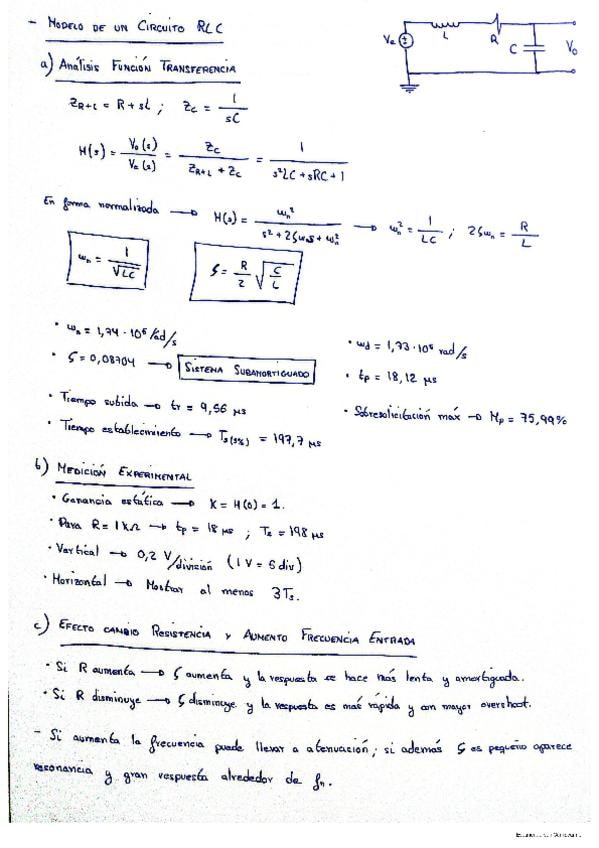 - MODELO DE UN CIRCUITO RLC
Ve L R C Vo
a) ANÁLISIS FUNCIÓN TRANSFERENCIA
Z_{R+L} = R + sL ; Z_C = 1/sC
H(s) = Vo(s)/Ve(s) = Z_C/(Z_{R+L} + Z_C) = 1/(s²LC + sRC + 1)
En forma normalizada → H(s) = ωn²/(s² + 2ζωns + ωn²) → ωn² = 1/LC ; 2ζωn = R/L
ωn = 1/√LC
ζ = R/2 √(C/L)
• ωn = 1,74 · 10⁵ rad/s
• ζ = 0,08704 → SISTEMA SUBAMORTIGUADO
• Tiempo subida → tr = 9,56 μs
• Tiempo establecimiento → Ts(5%) = 197,7 μs
• ωd = 1,73 · 10⁵ rad/s
• tp = 18,12 μs
• Sobresolicitación máx → Mp = 75,99%
b) MEDICIÓN EXPERIMENTAL
• Ganancia estática → K = H(0) = 1.
• Para R = 1 kΩ → tp = 18 μs ; Ts = 198 μs
• Vertical → 0,2 V/división (1 V = 5 div)
• Horizontal → Mostrar al menos 3Ts.
c) EFECTO CAMBIO RESISTENCIA Y AUMENTO FRECUENCIA ENTRADA
• Si R aumenta → ζ aumenta y la respuesta se hace más lenta y amortiguada.
• Si R disminuye → ζ disminuye y la respuesta es más rápida y con mayor overshoot.
- Si aumenta la frecuencia puede llevar a atenuación; si además ζ es pequeño aparece
resonancia y gran respuesta alrededor de fn.